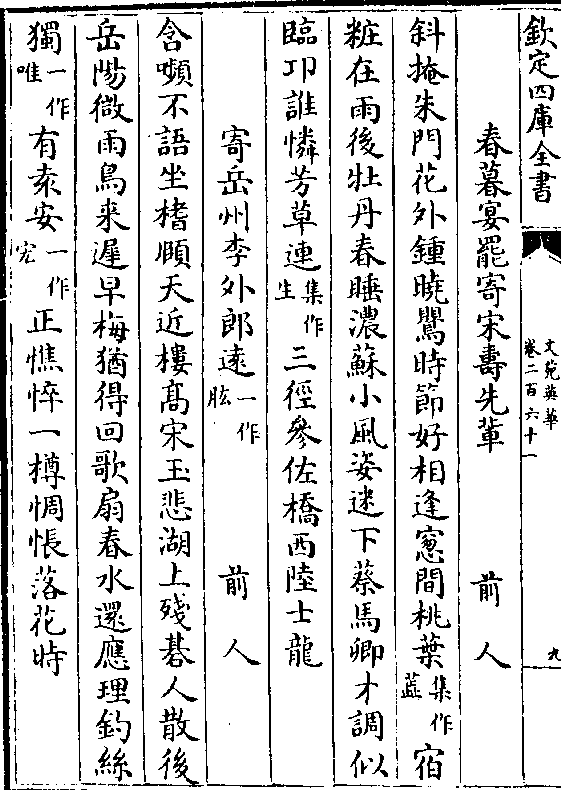 欽定四庫全書
文苑英華
卷二百六十一
九
春暮宴罷寄宋壽先軰　前人
斜掩朱門花外鍾曉鶯時節好相逢窓間桃葉集作蕋宿
粧在雨後牡丹春睡濃蘇小風姿迷下蔡馬卿才調似
臨卭誰憐芳草連集作生三徑參佐橋西陸士龍
寄岳州李外郎逺一作肱　前人
含嚬不語坐榰頥天近樓髙宋玉悲湖上殘碁人散後
岳陽微雨鳥来遲早梅猶得回歌扇春水還應理釣絲
獨一作唯有袁安一作宏正憔悴一樽惆悵落花時